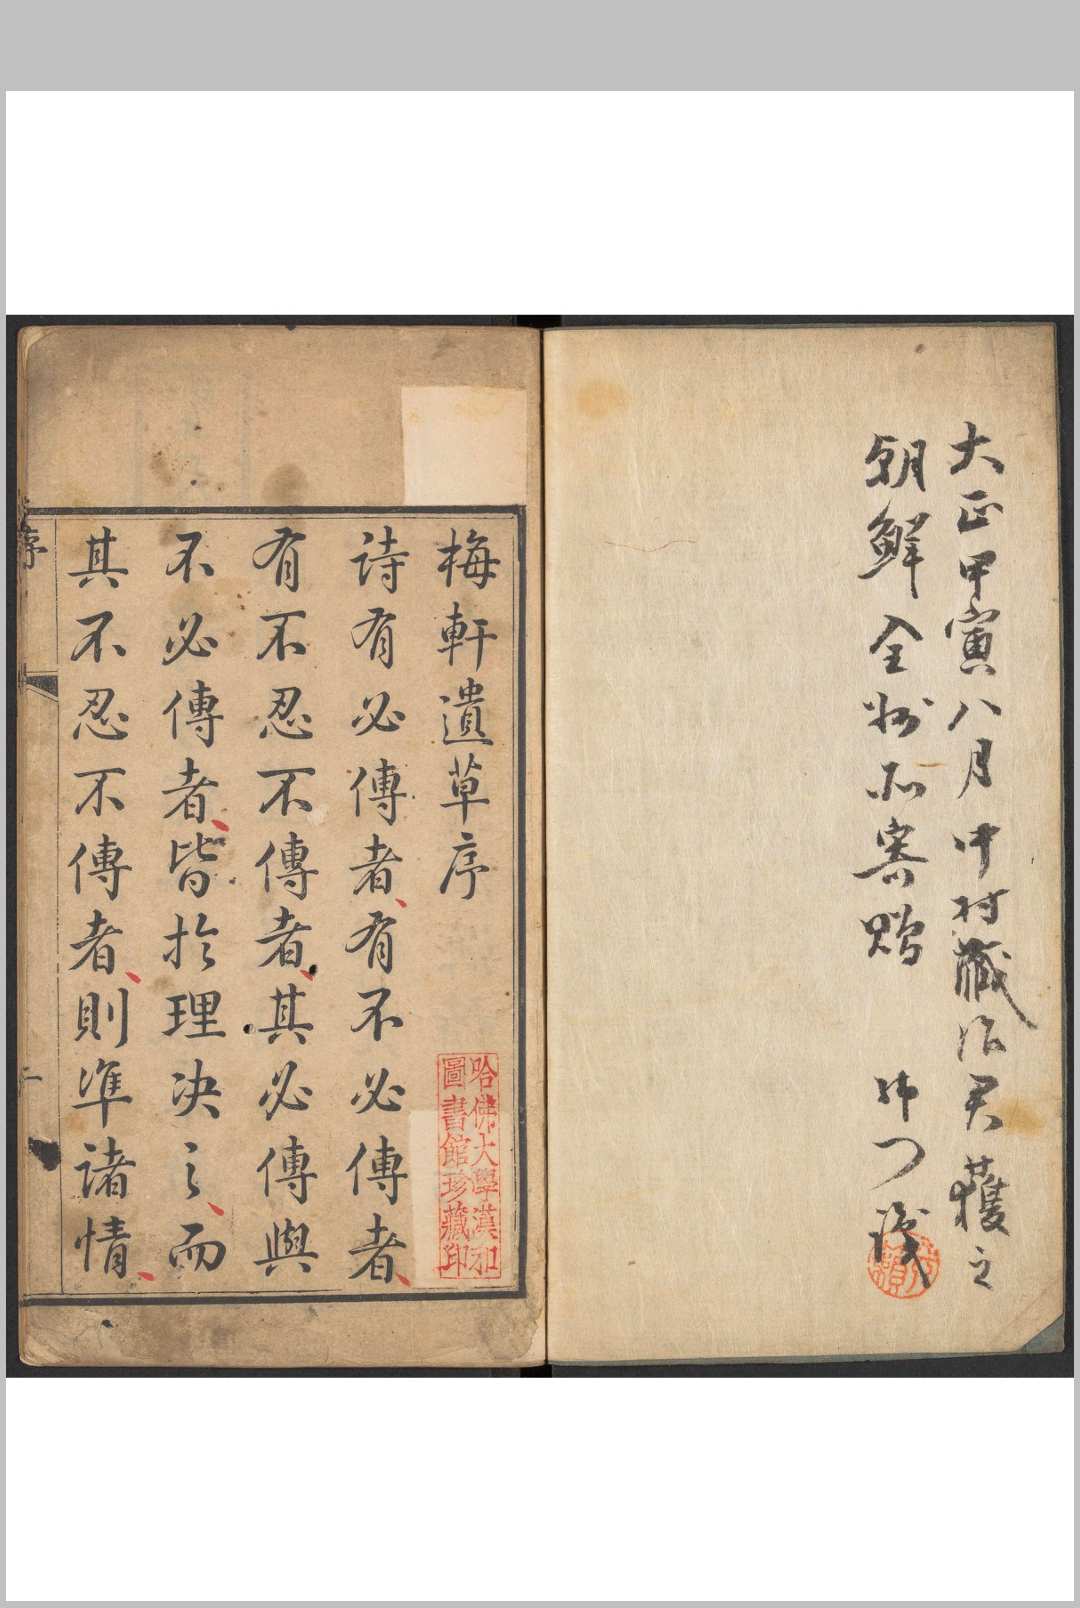 大正甲寅八月中村藏治君獲之
朝鮮全州而寄贈
帰つ識
梅軒遺草序
詩有必傳者有不必傳者
有不忍不傳者其必傳與
不必傳者皆於理決之而
其不忍不傳者則準諸情
哈佛大學漢和
圖書館珍藏印
序
一